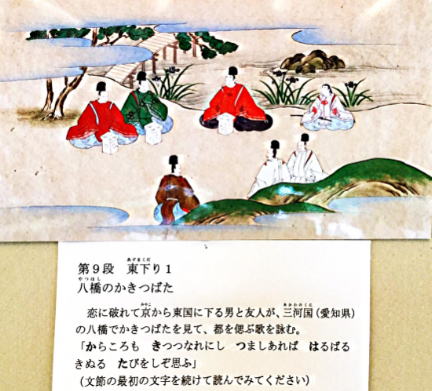 第9段 東下り1
八橋のかきつばた
恋に破れて京から東国に下る男と友人が、三河国(愛知県)
の八橋でかきつばたを見て、都を偲ぶ歌を詠む。
「からころも きつつなれにし つましあれば はるばる
きぬる たびをしぞ思ふ」
(文節の最初の文字を続けて読んでみてください)